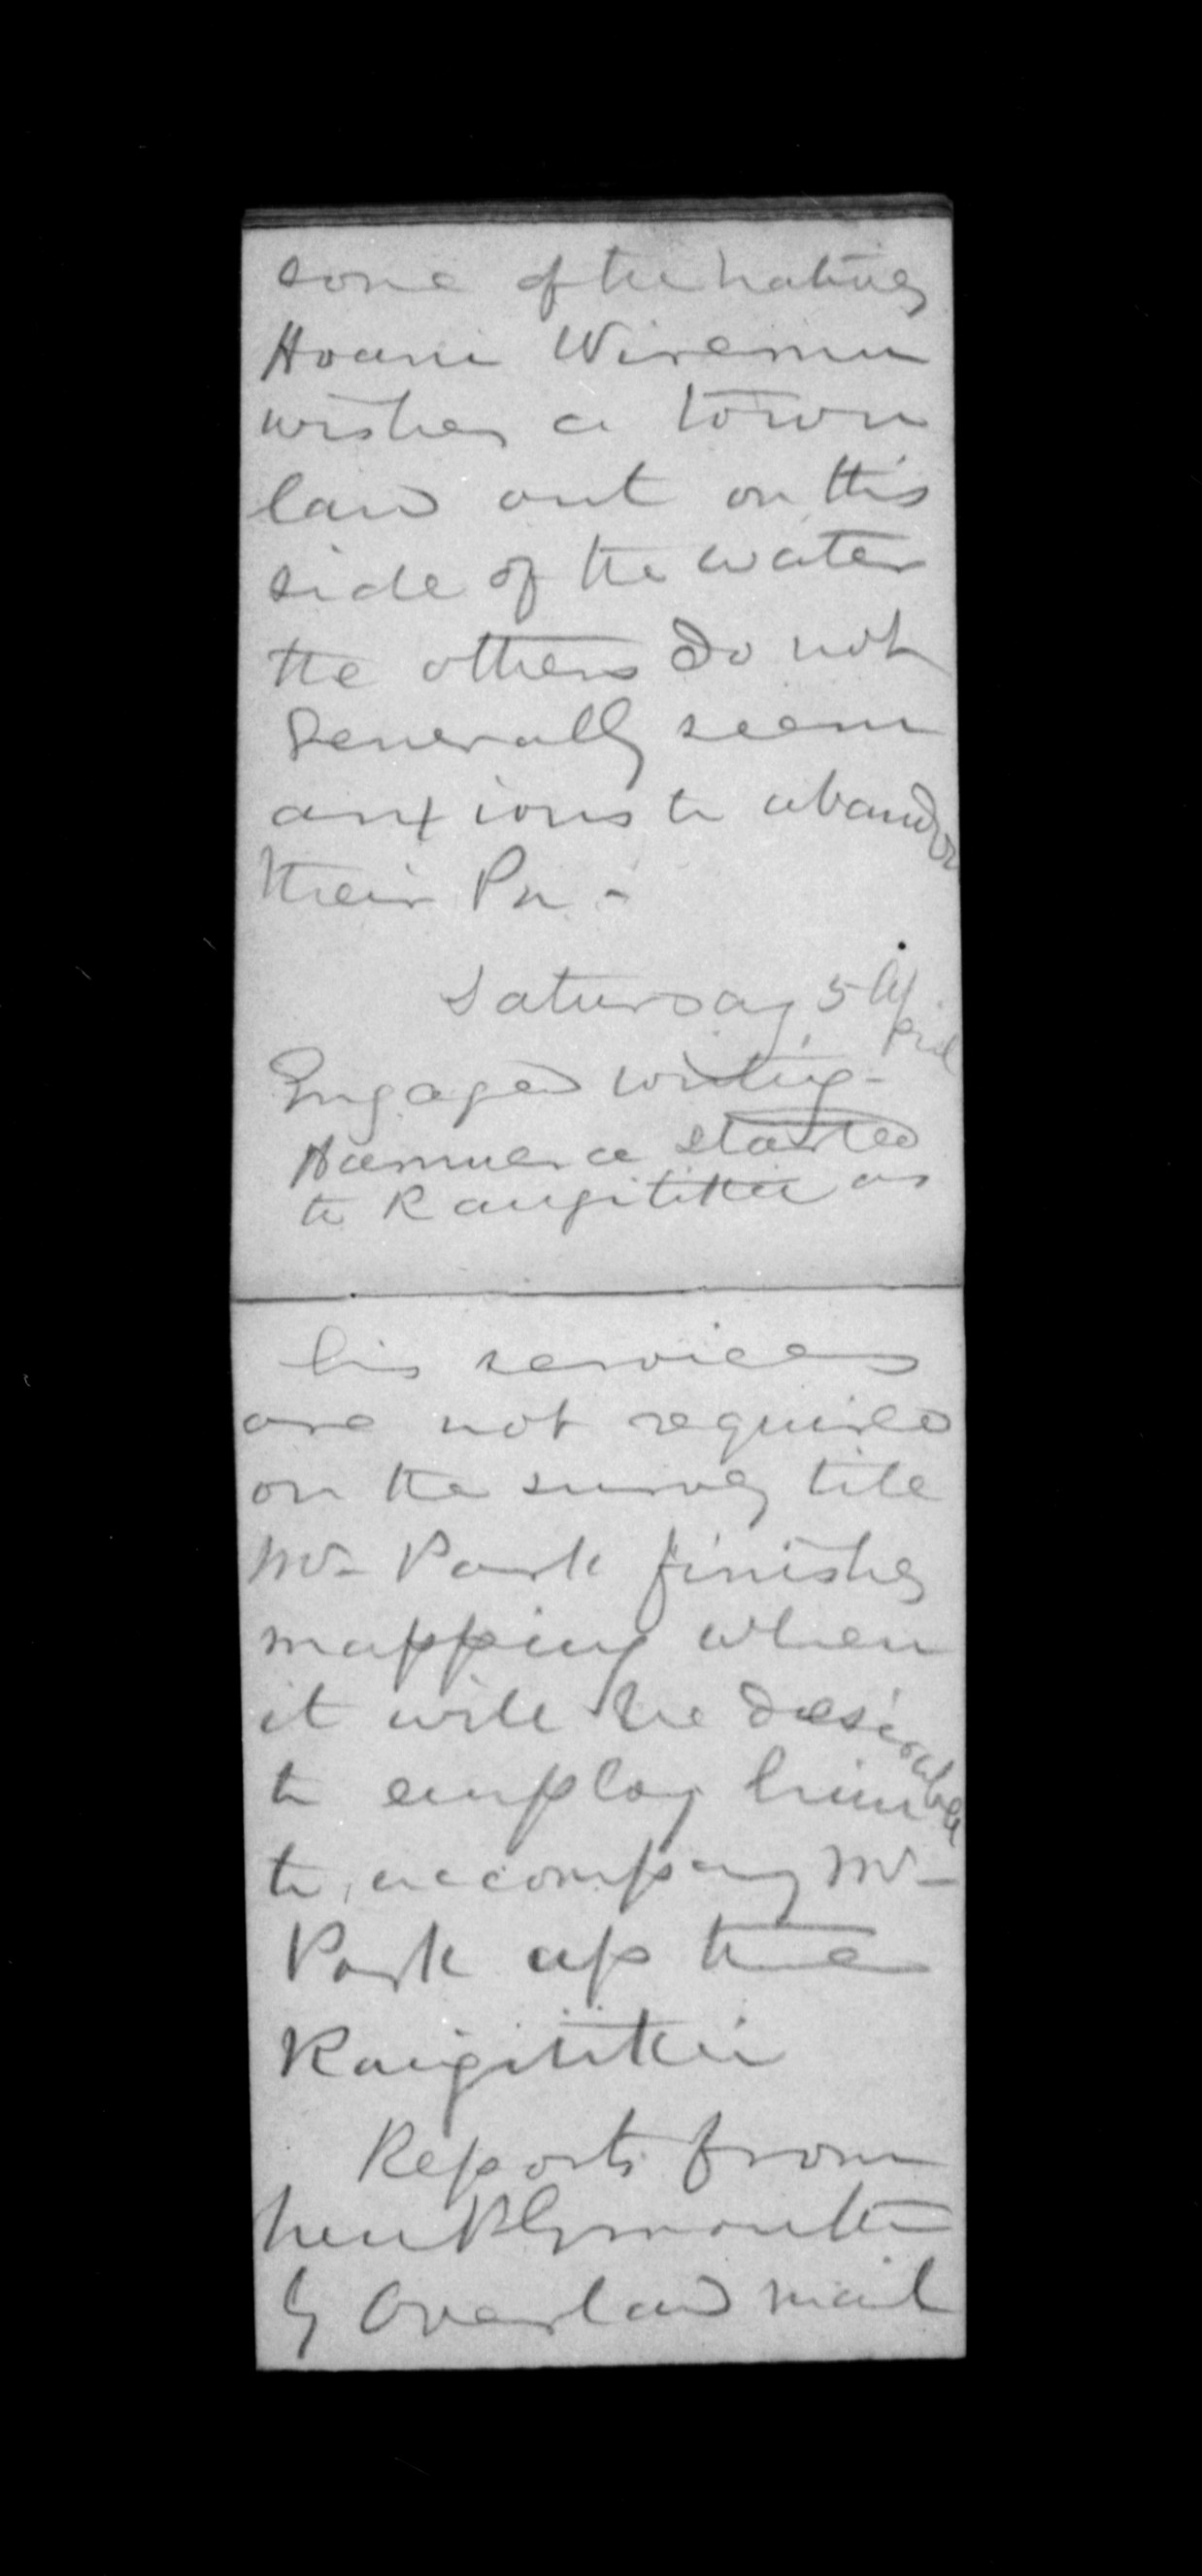 some of the natives
Hoani Wiremu
wishes a town
laid out on this
side of the water
the others do not
generally seem
anxious to abandon
their Pa -
Saturday, 5 April
Engaged writing -
Hamuera started
to Rangitikei as
his services
are not required
on the survey till
Mr Park finishes
mapping when
it will be desirable
to employ him
to accompany Mr
Park up the
Rangitikei
Reports from
New Plymouth
by Overland mail